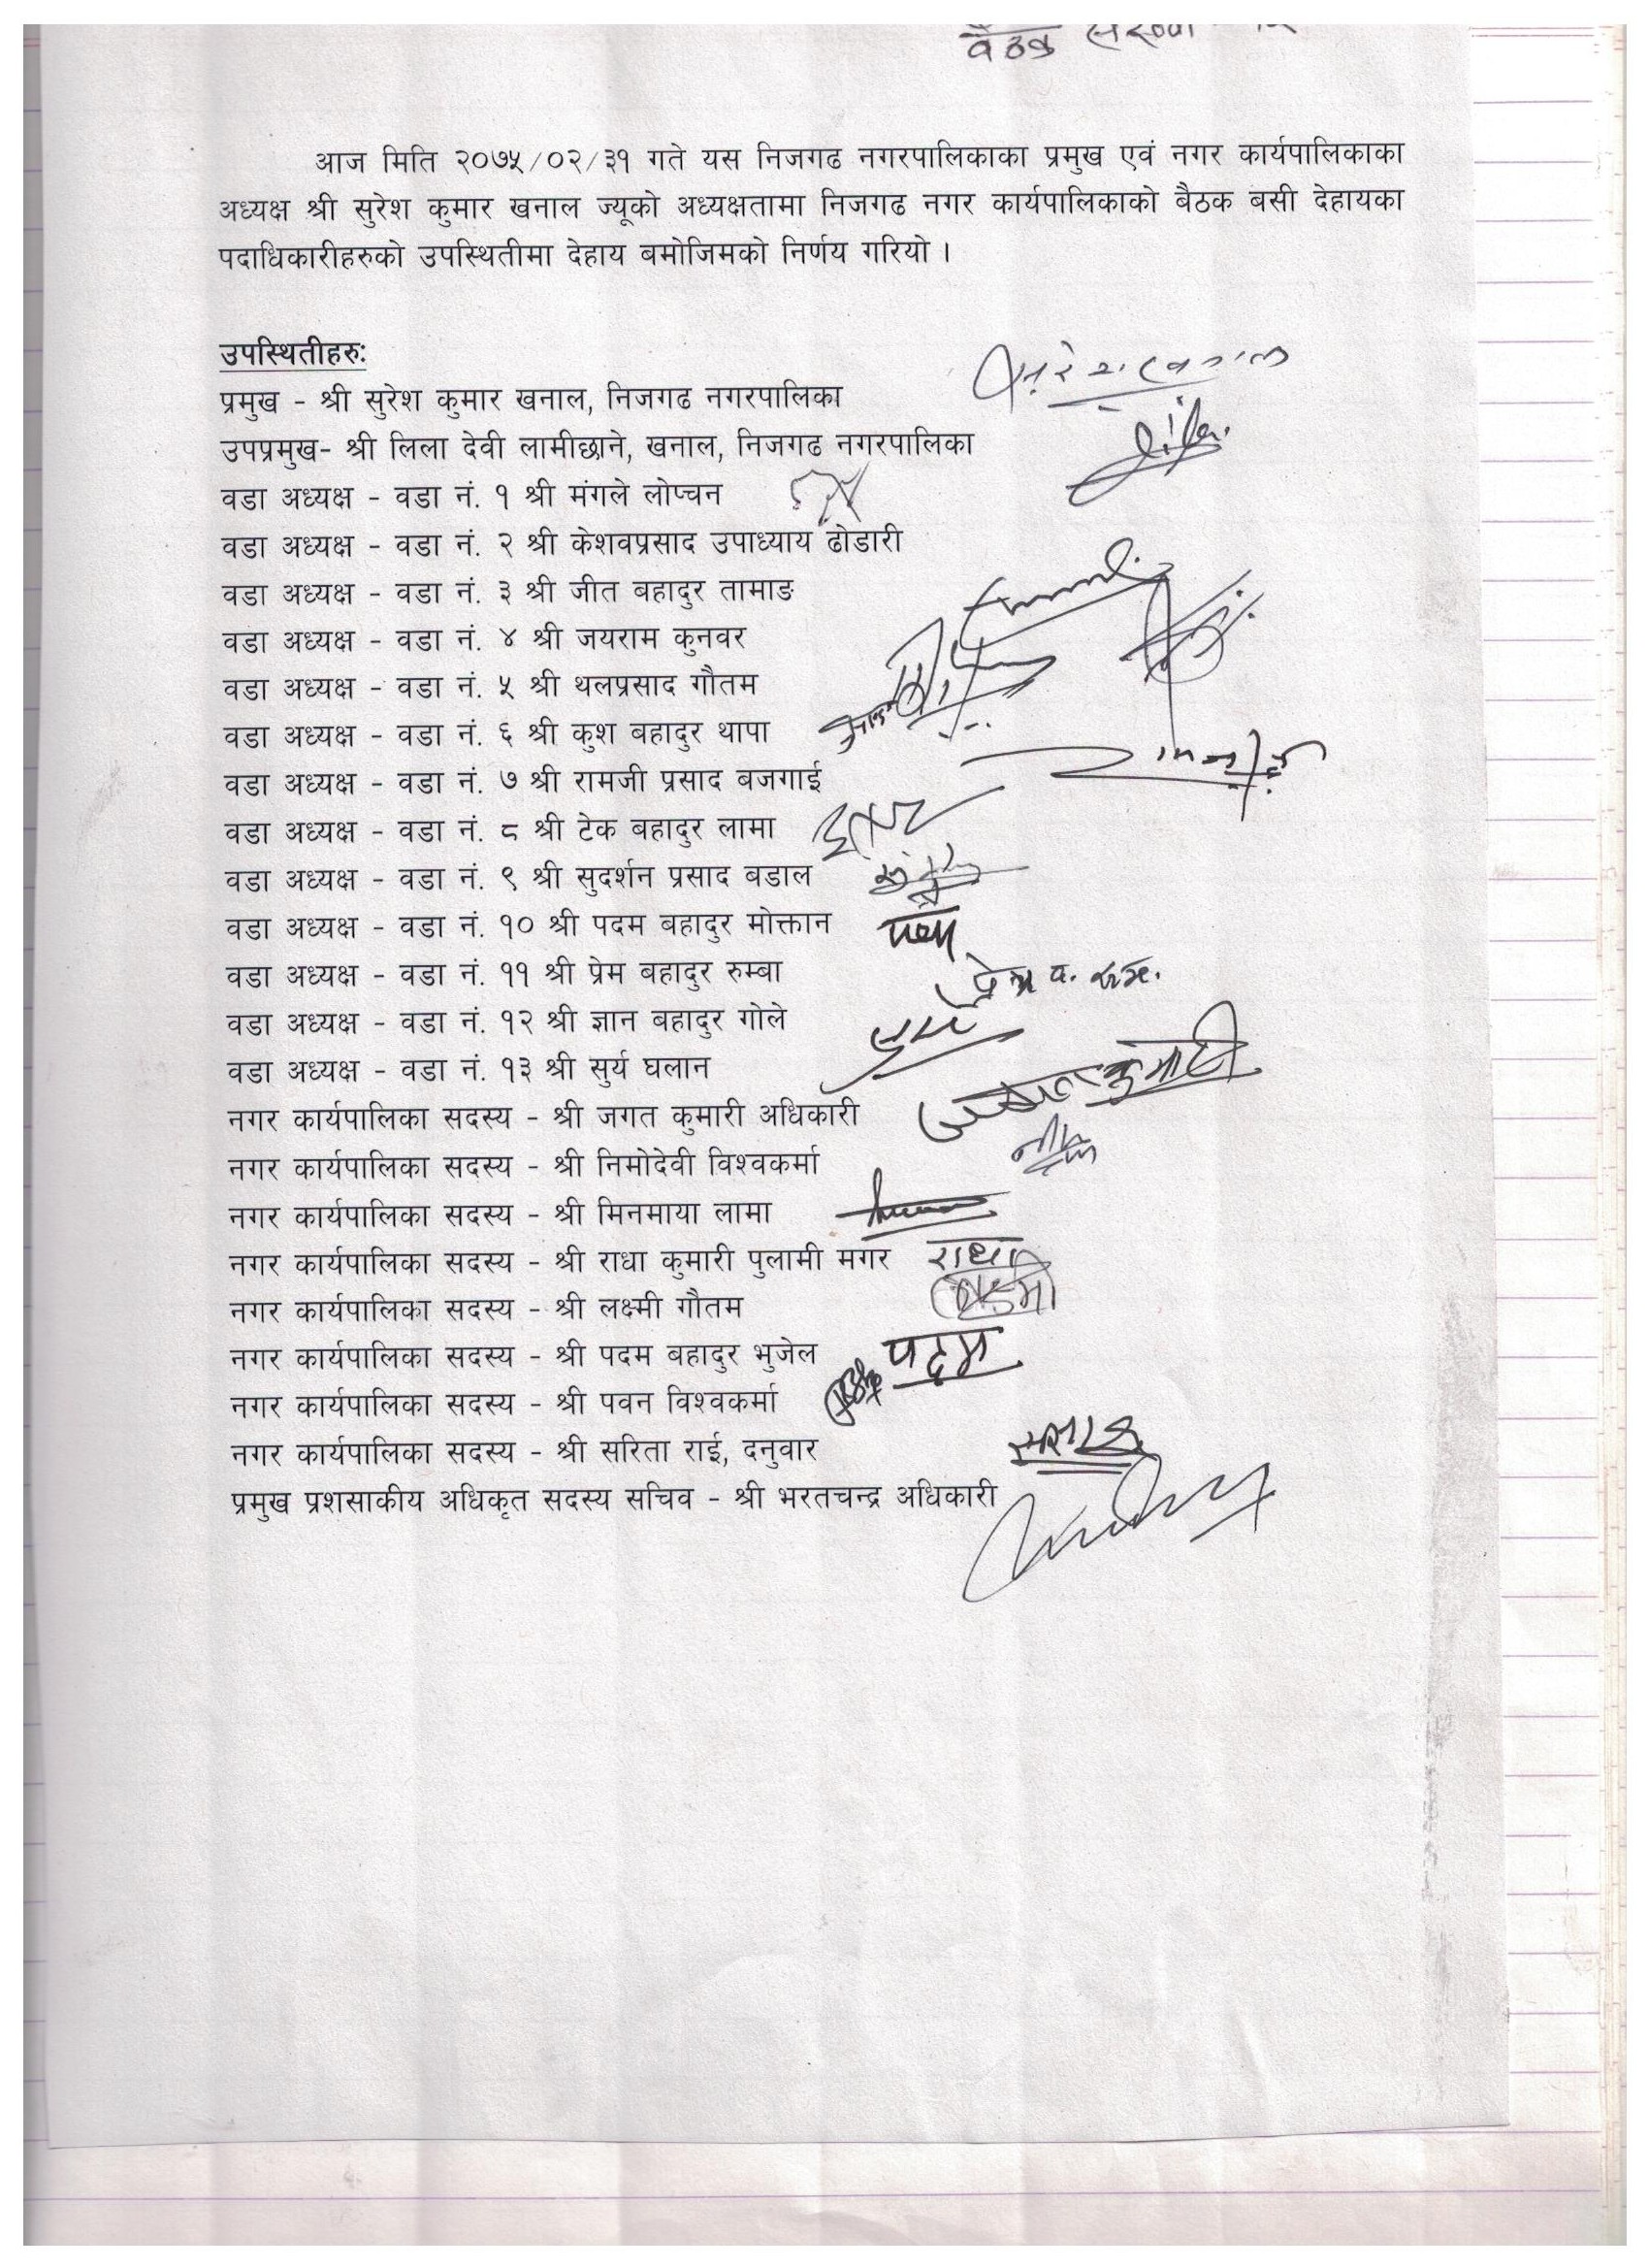 बैठक संख्या
आज मिति २०७५/०२/३१ गते यस निजगढ नगरपालिकाका प्रमुख एवं नगर कार्यपालिकाका
अध्यक्ष श्री सुरेश कुमार खनाल ज्यूको अध्यक्षतामा निजगढ नगर कार्यपालिकाको बैठक बसी देहायका
पदाधिकारीहरुको उपस्थितीमा देहाय बमोजिमको निर्णय गरियो ।
उपस्थितीहरु:
प्रमुख - श्री सुरेश कुमार खनाल, निजगढ नगरपालिका
उपप्रमुख- श्री लिला देवी लामीछाने, खनाल, निजगढ नगरपालिका
वडा अध्यक्ष - वडा नं. १ श्री मंगले लोप्चन
वडा अध्यक्ष - वडा नं. २ श्री केशवप्रसाद उपाध्याय ढोडारी
वडा अध्यक्ष - वडा नं. ३ श्री जीत बहादुर तामाङ
वडा अध्यक्ष - वडा नं. ४ श्री जयराम कुनवर
वडा अध्यक्ष - वडा नं. ५ श्री थलप्रसाद गौतम
वडा अध्यक्ष - वडा नं. ६ श्री कुश बहादुर थापा
वडा अध्यक्ष - वडा नं. ७ श्री रामजी प्रसाद बजगाई
वडा अध्यक्ष - वडा नं. ८ श्री टेक बहादुर लामा
वडा अध्यक्ष - वडा नं. ९ श्री सुदर्शन प्रसाद बडाल
वडा अध्यक्ष - वडा नं. १० श्री पदम बहादुर मोक्तान
वडा अध्यक्ष - वडा नं. ११ श्री प्रेम बहादुर रुम्बा
वडा अध्यक्ष - वडा नं. १२ श्री ज्ञान बहादुर गोले
वडा अध्यक्ष - वडा नं. १३ श्री सुर्य घलान
नगर कार्यपालिका सदस्य - श्री जगत कुमारी अधिकारी
नगर कार्यपालिका सदस्य - श्री निमोदेवी विश्वकर्मा
नगर कार्यपालिका सदस्य - श्री मिनमाया लामा
नगर कार्यपालिका सदस्य - श्री राधा कुमारी पुलामी मगर राधा
नगर कार्यपालिका सदस्य - श्री लक्ष्मी गौतम
नगर कार्यपालिका सदस्य - श्री पदम बहादुर भुजेल पदम
नगर कार्यपालिका सदस्य - श्री पवन विश्वकर्मा
नगर कार्यपालिका सदस्य - श्री सरिता राई, दनुवार
प्रमुख प्रशसाकीय अधिकृत सदस्य सचिव - श्री भरतचन्द्र अधिकारी